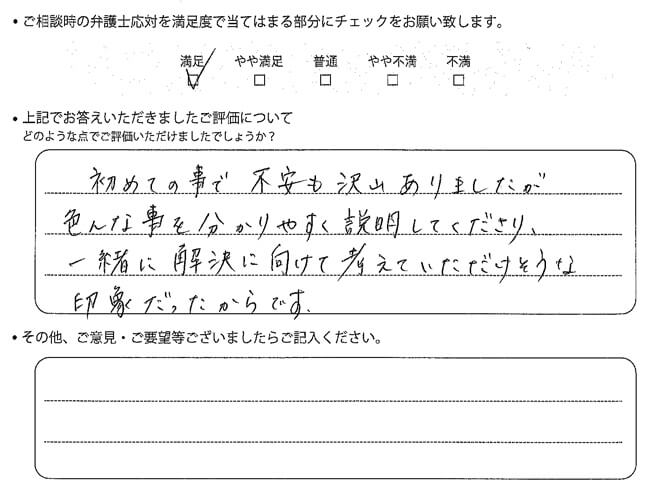 ・ご相談時の弁護士応対を満足度で当てはまる部分にチェックをお願い致します。
満足 やや満足 普通 やや不満 不満
・上記でお答えいただきましたご評価について
どのような点でご評価いただけましたでしょうか？
初めての事で 不安も沢山ありましたが
色んな事を分かりやすく説明してくださり、
一緒に解決に向けて考えていただけそうな
印象だったからです.
・その他、ご意見・ご要望等ございましたらご記入ください。